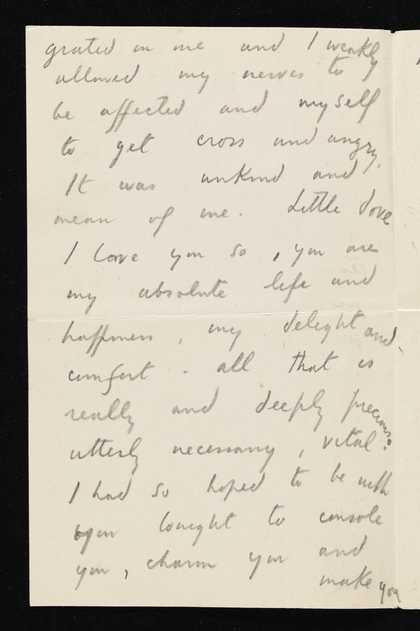 grated on me and I weakly
allowed my nerves to
be affected and myself
to get cross and angry.
It was unkind and
mean of me. Little dove
I love you so, you are
my absolute life and
happiness, my delight and
comfort - all that is
really and deeply precious.
utterly necessary, vital.
I had so hoped to be with
you tonight to console
you, charm you and
make you